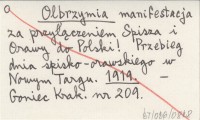 Olbrzymia manifestacja
za przyłączeniem Spisza i
Orawy do Polski! Przebieg
dnia spisko-orawskiego w
Nowym Targu. 1919. –
Goniec Krak. nr 209.